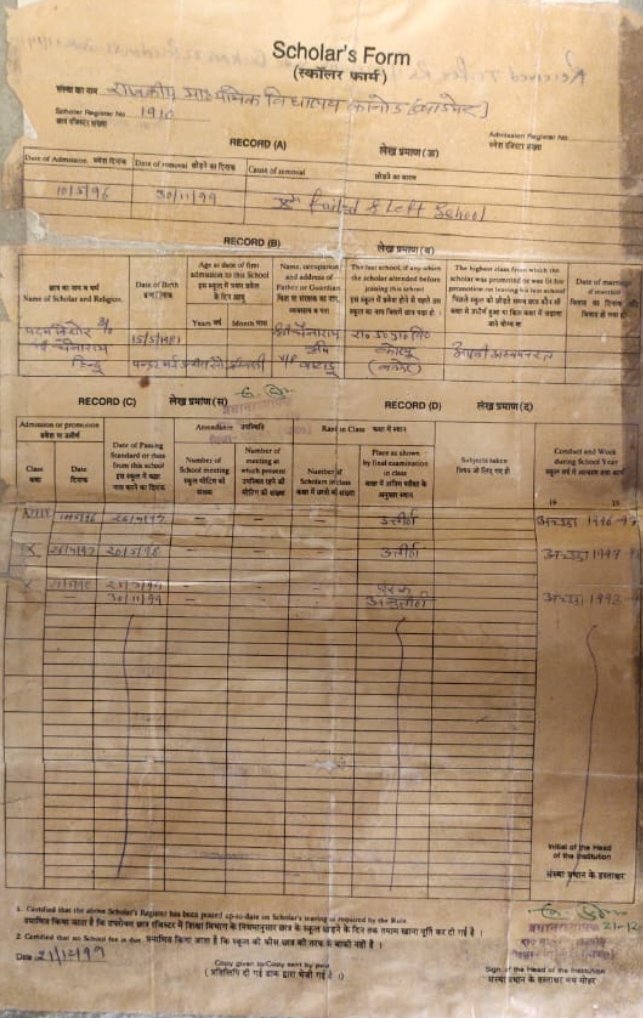 Scholar's Form
(स्कॉलर फार्म)
संस्था का नाम राजकीय माध्यमिक विद्यालय कानोड (बाडमेर)
Scholar Register No. 1910
छात्र रजिस्टर संख्या
Admission Register No.
प्रवेश रजिस्टर संख्या
RECORD (A) लेख प्रमाण (अ)
Date of Admission. प्रवेश दिनांक Date of removal छोड़ने का दिनांक Cause of removal
छोड़ने का कारण
10/5/96 30/11/99 Xth Failed & Left School
RECORD (B) लेख प्रमाण (ब)
छात्र का नाम व धर्म
Name of Scholar and Religion.
Date of Birth
जन्म दिनांक
Age at date of first
admission to this School
इस स्कूल में प्रथम प्रवेश
के दिन आयु
Years वर्ष Month मास
Name, occupation
and address of
Father or Guardian
पिता या संरक्षक का नाम,
व्यवसाय व पता
The last school, if any which
the scholar attended before
joining this school
इस स्कूल में प्रवेश होने से पहले उस
स्कूल का नाम जिसमें छात्र पढ़ा हो ।
The highest class from which the
scholar was promoted or was fit for
promotion on leaving his last school
Date of marriage
if married
15/5/1981
हिन्दू
RECORD (C) लेख प्रमाण (स) RECORD (D) लेख प्रमाण (द)
Admission or promotion
प्रवेश या उत्तीर्ण
Class
कक्षा
Date
दिनांक
Date of Passing
Standard or class
from this school
Attendance उपस्थिति
Number of
School meeting
स्कूल मीटिंग की
संख्या
Number of
meeting at
which present
उपस्थित रहने की
मीटिंग की संख्या
Rank in Class कक्षा में स्थान
Number of
Scholars in class
Place as shown
by final examination
in class
कक्षा में अन्तिम परीक्षा के
अनुसार स्थान
Subjects taken
विषय जो लिए गए हो
Conduct and Work
during School Year
19 19
VIII 10/5/96 - - - उत्तीर्ण अच्छा 1996-97
IX 20/5/98 - - - उत्तीर्ण अच्छा
X - - - पूरक
- 30/11/99 - - - अनुत्तीर्ण अच्छा
Initial of the Head
of the Institution
संस्था प्रधान के हस्ताक्षर
1. Certified that the above Scholar's Register has been posted up-to-date on Scholar's leaving as required by the Rule
प्रमाणित किया जाता है कि उपरोक्त छात्र रजिस्टर में शिक्षा विभाग के नियमानुसार छात्र के स्कूल छोड़ने के दिन तक तमाम खाना पूर्ति कर दी गई है ।
2. Certified that no School fee is due प्रमाणित किया जाता है कि स्कूल की फीस छात्र की तरफ से बाकी नहीं है ।
Date 21/12/99
Copy given to/Copy sent by post
( प्रतिलिपि दी गई डाक द्वारा भेजी गई है ।)
प्रधानाध्यापक 21-12
Sign. of the Head of the Institution
संस्था प्रधान के हस्ताक्षर मय मोहर